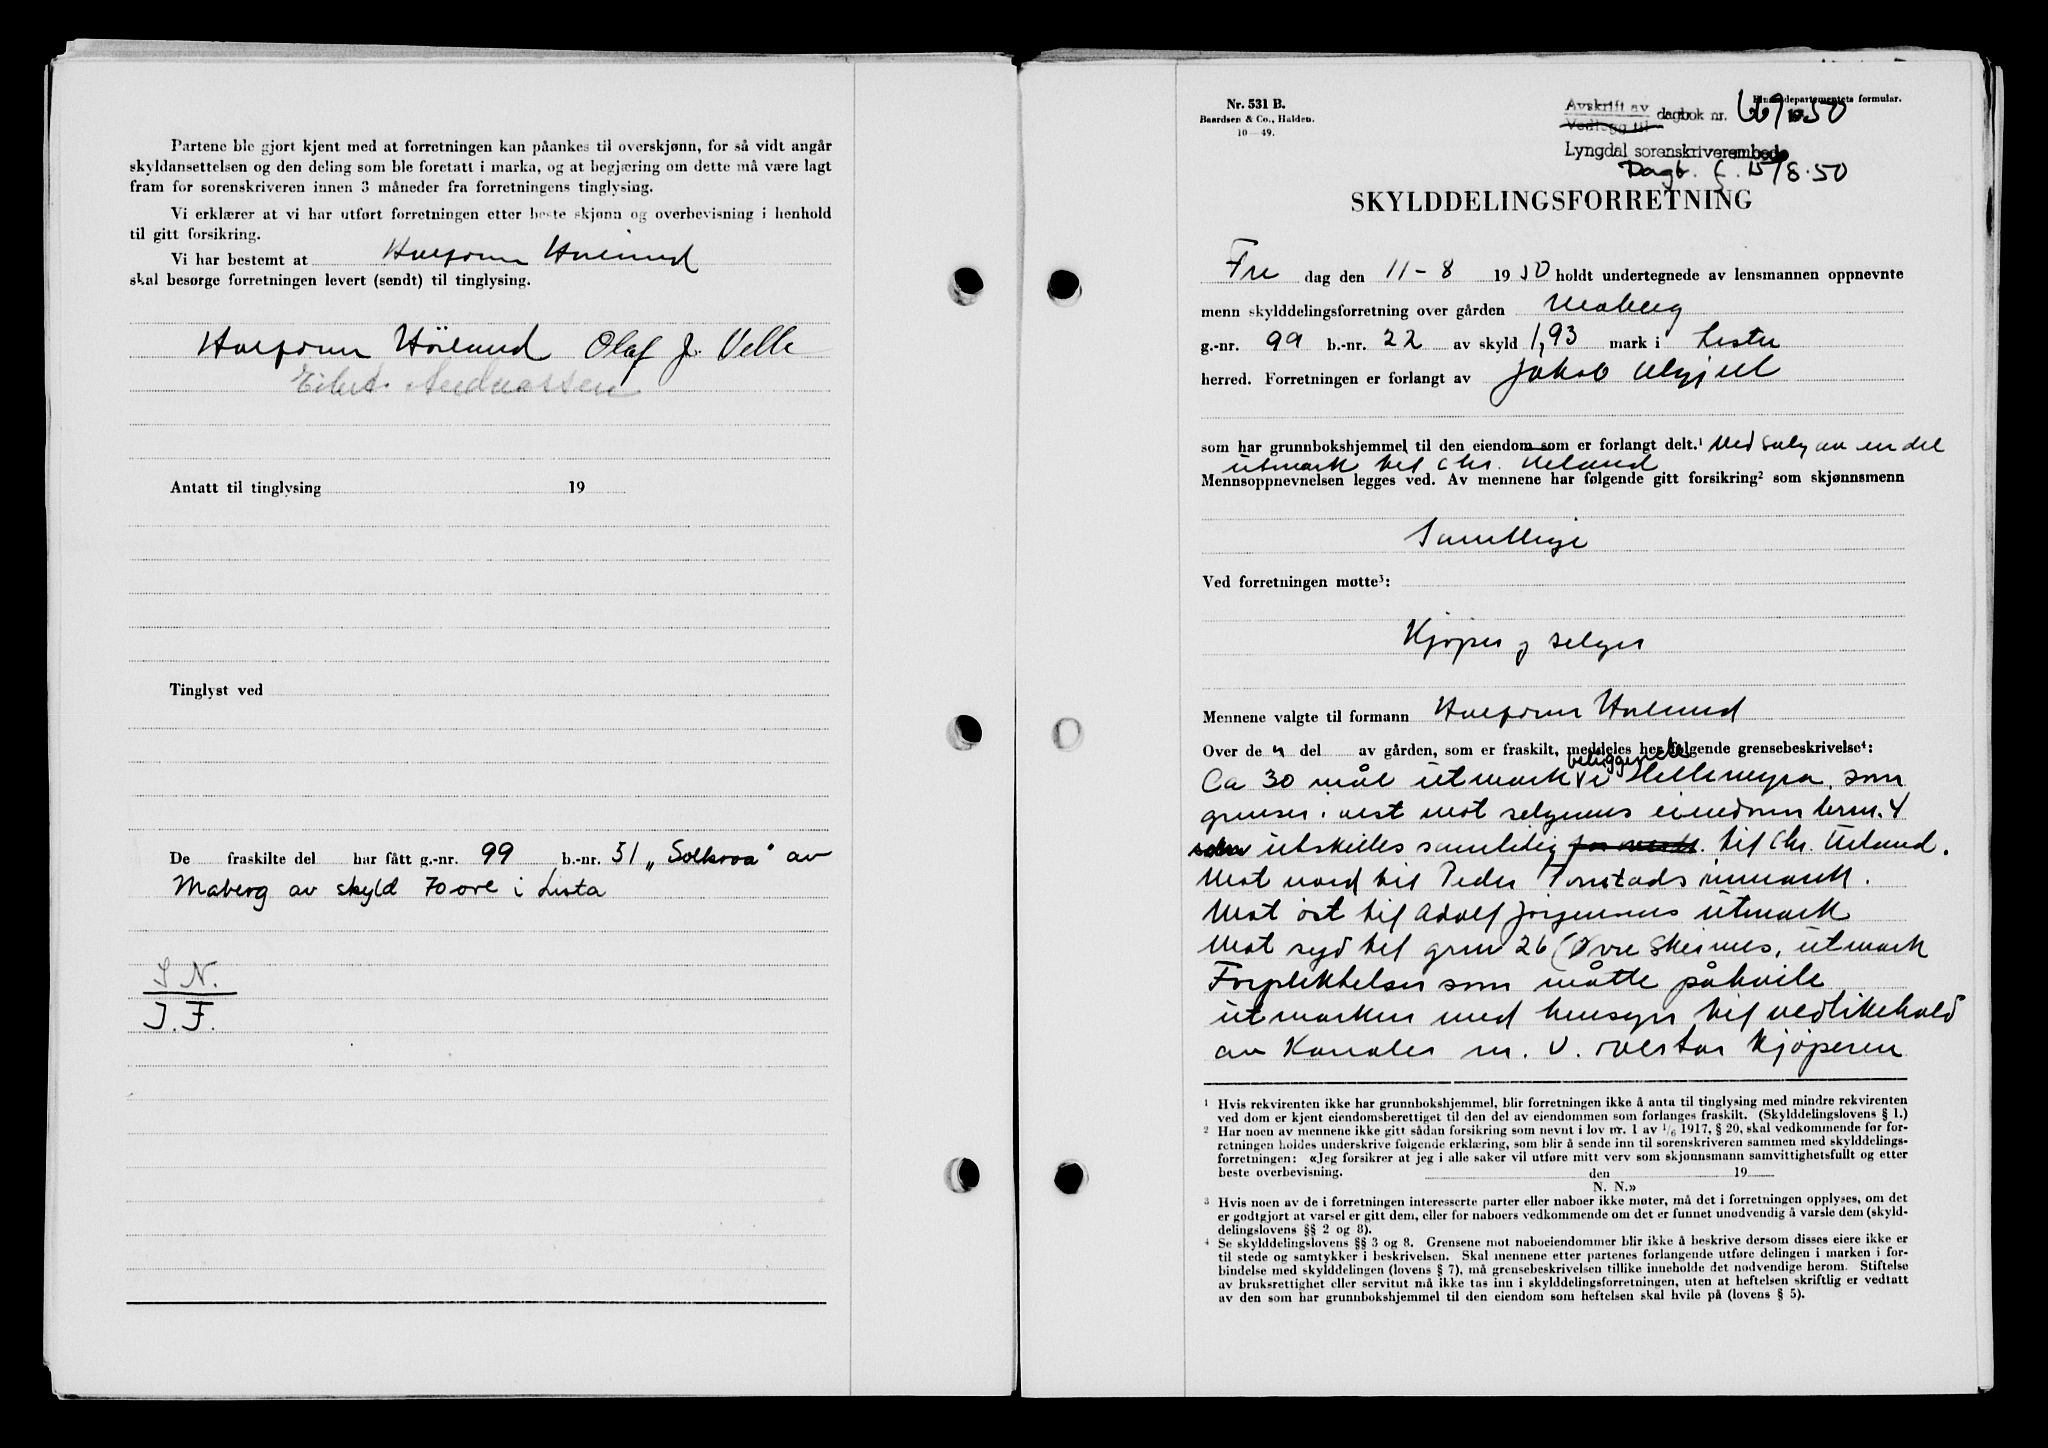 Partene ble gjort kjent med at forretningen kan påankes til overskjønn, for så vidt angår
skyldansettelsen og den deling som ble foretatt i marka, og at begjæring om dette må være lagt
fram for sorenskriveren innen 3 måneder fra forretningens tinglysing.
Vi erklærer at vi har utført forretningen etter beste skjønn og overbevisning i henhold
til gitt forsikring.
Vi har bestemt at
skal besørge forretningen levert (sendt) til tinglysing.
Olaf J. Velle
Andreassen
Antatt til tinglysing 19
Tinglyst ved
De fraskilte del har fått g.-nr. 99 b.-nr. 51 „Solkroa" av
Maberg av skyld 70 øre i Lista
S N.
J. F.
Nr. 531 B.
Baardsen & Co., Halden.
10—49.
Avskrift av
Vedlegg til
dagbok nr. 669 50
Finansdepartementets formular.
Lyngdal sorenskriverembede
Dagb. 15/8-50
SKYLDDELINGSFORRETNING
Fre dag den 11-8 1950 holdt undertegnede av lensmannen oppnevnte
menn skylddelingsforretning over gården Maberg
g.-nr. 99 b.-nr. 22 av skyld 1,93 mark i Lista
herred. Forretningen er forlangt av Jakob
som har grunnbokshjemmel til den eiendom som er forlangt delt.¹ Ved salg av en del
utmark til Chr. Ueland
Mennsoppnevnelsen legges ved. Av mennene har følgende gitt forsikring² som skjønnsmenn
Samtlige
Ved forretningen møtte³:
Kjøper og selger
Mennene valgte til formann
Over den del av gården, som er fraskilt, meddeles her følgende grensebeskrivelse⁴:
Ca 30 mål utmark beliggende i Hellemyra, som
grenser i vest mot selgerens eiendom brnr. 4
som utskilles samtidig for verdt. til Chr. Ueland.
Mot nord til Peder Tonstads innmark.
Mot øst til Adolf Jørgensens utmark
Mot syd til grnr 26 (Øvre Skeimes, utmark
Forpliktelser som måtte påhvile
utmarken med hensyn til vedlikehold
av Kanaler m. v. overtar kjøperen
¹ Hvis rekvirenten ikke har grunnbokshjemmel, blir forretningen ikke å anta til tinglysing med mindre rekvirenten
ved dom er kjent eiendomsberettiget til den del av eiendommen som forlanges fraskilt. (Skylddelingslovens § 1.)
² Har noen av mennene ikke gitt sådan forsikring som nevnt i lov nr. 1 av 1/6 1917, § 20, skal vedkommende før for-
retningen holdes underskrive følgende erklæring, som blir å sende inn til sorenskriveren sammen med skylddelings-
forretningen: «Jeg forsikrer at jeg i alle saker vil utføre mitt verv som skjønnsmann samvittighetsfullt og etter
beste overbevisning. den 19
N. N.»
³ Hvis noen av de i forretningen interesserte parter eller naboer ikke møter, må det i forretningen opplyses, om det
er godtgjort at varsel er gitt dem, eller for naboers vedkommende om det er funnet unødvendig å varsle dem (skyld-
delingslovens §§ 2 og 8).
⁴ Se skylddelingslovens §§ 3 og 8. Grensene mot naboeiendommer blir ikke å beskrive dersom disses eiere ikke er
til stede og samtykker i beskrivelsen. Skal mennene etter partenes forlangende utføre delingen i marken i for-
bindelse med skylddelingen (lovens § 7), må grensebeskrivelsen tillike inneholde det nødvendige herom. Stiftelse
av bruksrettighet eller servitut må ikke tas inn i skylddelingsforretningen, uten at heftelsen skriftlig er vedtatt
av den som har grunnbokshjemmel til den eiendom som heftelsen skal hvile på (lovens § 5).